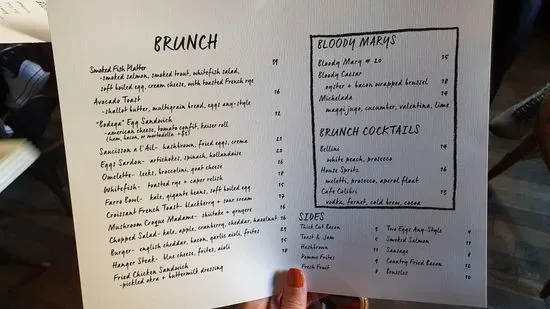 BRUNCH
Smoked Fish Platter 39
-smoked salmon, smoked trout, whitefish salad,
soft boiled egg, cream cheese, with toasted French rye
Avocado Toast 16
-shallot butter, multigrain bread, eggs any-style
"Bodega" Egg Sandwich 12
-american cheese, tomato confit, kaiser roll
(ham, bacon, or mortadella +$5)
Saucisson a l'Ail- hashbrown, fried eggs, crema 21
Eggs Sardou- artichokes, spinach, hollandaise 20
Omelette- leeks, broccolini, goat cheese 16
Whitefish- toasted rye + caper relish 18
Farro Bowl- kale, gigante beans, soft boiled egg
Croissant French Toast- blackberry + sour cream
Mushroom Croque Madame- shiitake + gruyere
Chopped Salad- kale, apple, cranberry, cheddar, hazelnut 16
Burger- english cheddar, bacon, garlic aioli, frites
Hanger Steak- blue cheese, frites, aioli
Fried Chicken Sandwich 18
-pickled okra + buttermilk dressing
BLOODY MARYS
Bloody Mary # 20 15
Bloody Caesar 18
oyster + bacon wrapped brussel
Michelada 14
maggi jugo, cucumber, valentina, lime
BRUNCH COCKTAILS
Bellini 14
white peach, prosecco
House Spritz 16
meletti, prosecco, aperol float
Cafe Colibri 15
vodka, fernet, cold brew, cocoa
SIDES
Thick Cut Bacon
Toast & Jam
Hashbrown
Pommes Frites
Fresh Fruit
Two Eggs Any-Style 4
Smoked Salmon 11
Sausage
Country Fried Bacon 12
Brussels 10